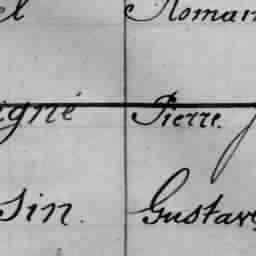 el Romain
igné Pierre.
sin. Gustave